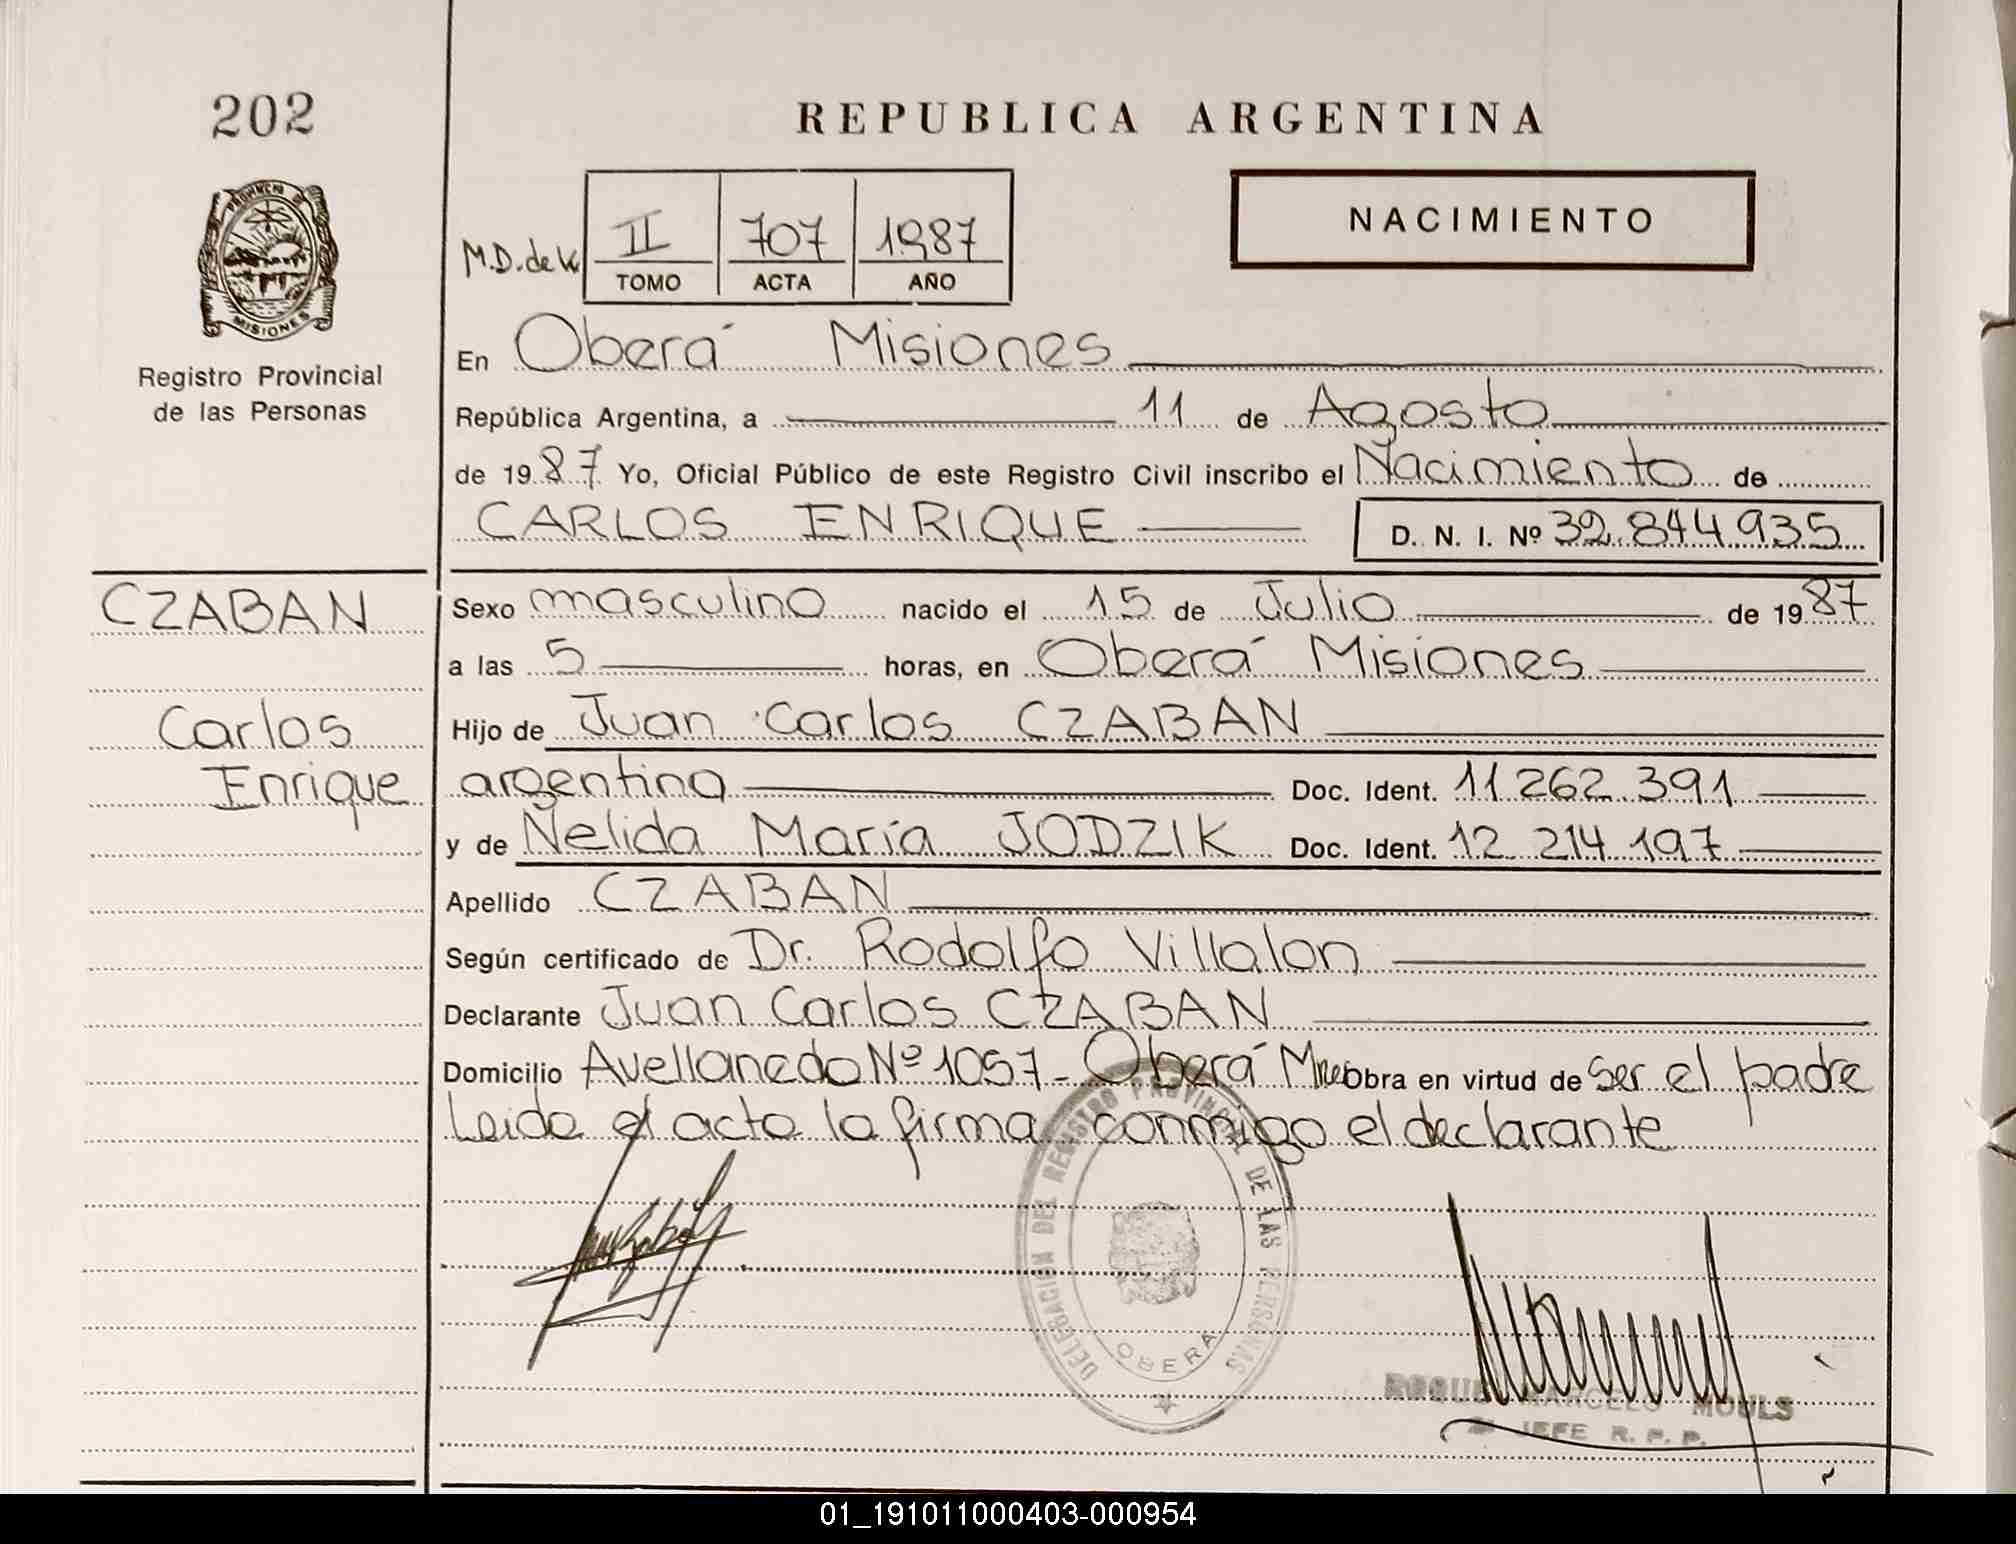 202
REPUBLICA ARGENTINA
PROVINCIA D
MISIONES
Registro Provincial
de las Personas
M.D. de K
II
TOMO
707
ACTA
1987
AÑO
NACIMIENTO
En Oberá Misiones
República Argentina, a 11 de Agosto
de 1987 Yo, Oficial Público de este Registro Civil inscribo el Nacimiento de
CARLOS ENRIQUE D. N. I. Nº 32.844.935
CZABAN
Carlos
Enrique
Sexo masculino nacido el 15 de Julio de 1987
a las 5 horas, en Oberá Misiones
Hijo de Juan Carlos CZABAN
argentina Doc. Ident. 11.262.391
y de Nelida María JODZIK Doc. Ident. 12.214.197
Apellido CZABAN
Según certificado de Dr. Rodolfo Villalon
Declarante Juan Carlos CZABAN
Domicilio Avellaneda Nº 1057 - Oberá Mnes Obra en virtud de Ser el padre
Leida el acta la firma conmigo el declarante
DELEGACION DEL REGISTRO PROVINCIAL DE LAS PERSONAS
OBERA
ROQUE MARCELO MOULS
JEFE R. P. P.
01_191011000403-000954